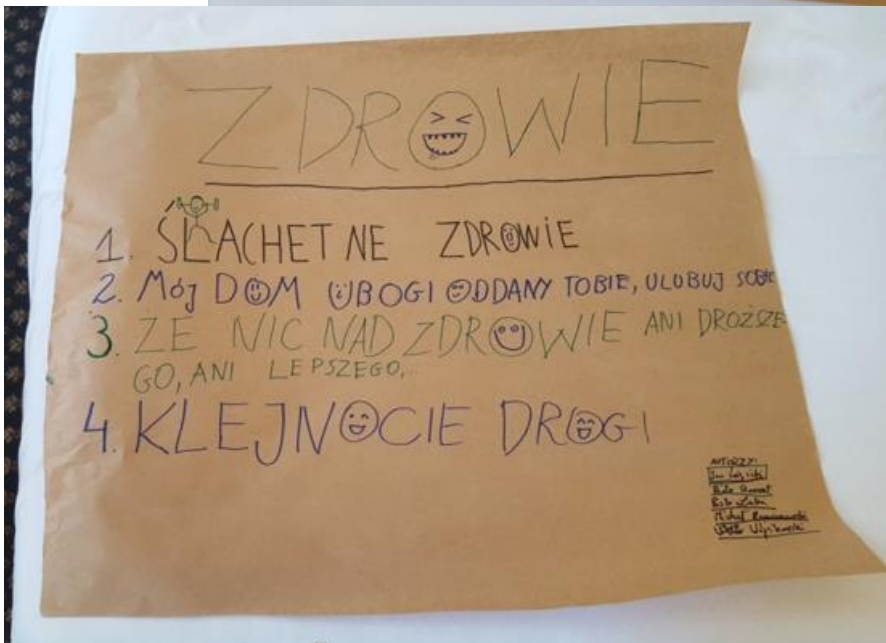 ZDROWIE
1. ŚLACHETNE ZDROWIE
2. MÓJ DOM UBOGI ODDANY TOBIE, ULUBUJ SOBIE
3. ŻE NIC NAD ZDROWIE ANI DROŻSZE-
GO, ANI LEPSZEGO,
4. KLEJNOCIE DROGI
AUTORZY:
Michał